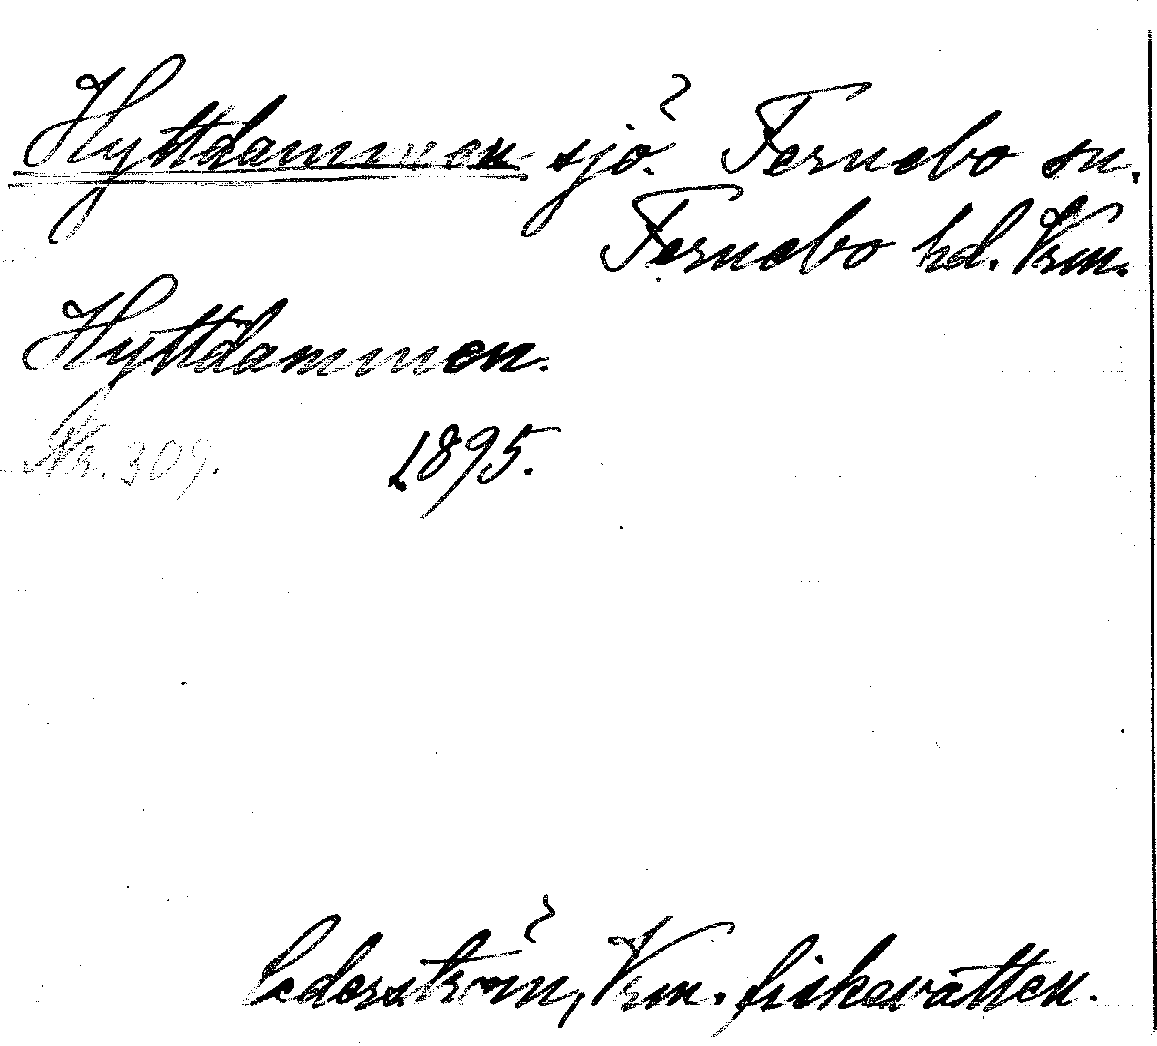 Hyttdammen sjö. Fernebo sn.
Fernebo hd. Vrm.
Hyttdammen.
Nr. 309. 1895.
Cederström, Vrm. fiskevatten.